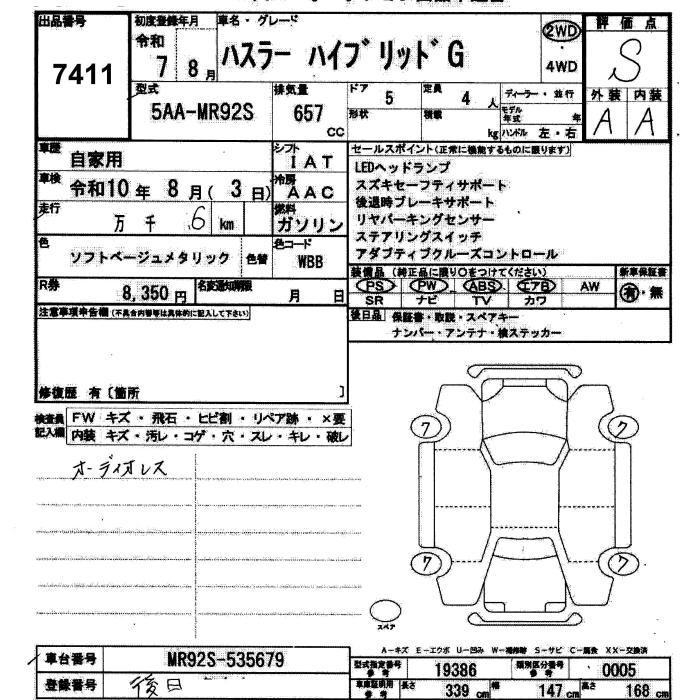 出品番号
7411
初度登録年月
令和
7 8月
車名・グレード
ハスラー ハイブリッドG
2WD
4WD
評価点
S
外装 内装
A A
型式
5AA-MR92S
排気量
657
CC
ドア
5
定員
4 人
形状
積載
kg
ディーラー・並行
モデル年式 年
ハンドル 左・右
車歴
自家用
シフト
IAT
車検
令和10年 8月( 3日)
冷房
AAC
走行
万 千 6 km
燃料
ガソリン
色
ソフトベージュメタリック
色替
色コード
WBB
R券
8,350円
名変通知期限
月 日
セールスポイント(正常に機能するものに限ります)
LEDヘッドランプ
スズキセーフティサポート
後退時ブレーキサポート
リヤパーキングセンサー
ステアリングスイッチ
アダプティブクルーズコントロール
装備品 (純正品に限り○をつけてください)
PS PW ABS エアB AW
SR ナビ TV カワ
新車保証書
有・無
後日品
保証書・取説・スペアキー
ナンバー・アンテナ・検ステッカー
注意事項申告欄(不具合内容等は具体的に記入して下さい)
修復歴 有〔箇所 〕
検査員記入欄
FW キズ・飛石・ヒビ割・リペア跡・×要
内装 キズ・汚レ・コゲ・穴・スレ・キレ・破レ
オーディオレス
7 7
7 7
スペア
A−キズ E−エクボ U−凹み W−補修跡 S−サビ C−腐食 XX−交換済
車台番号
MR92S-535679
登録番号
後日
型式指定番号
参考
19386
類別区分番号
参考
0005
車庫証明用
参考
長さ 339 cm 幅 147 cm 高さ 168 cm